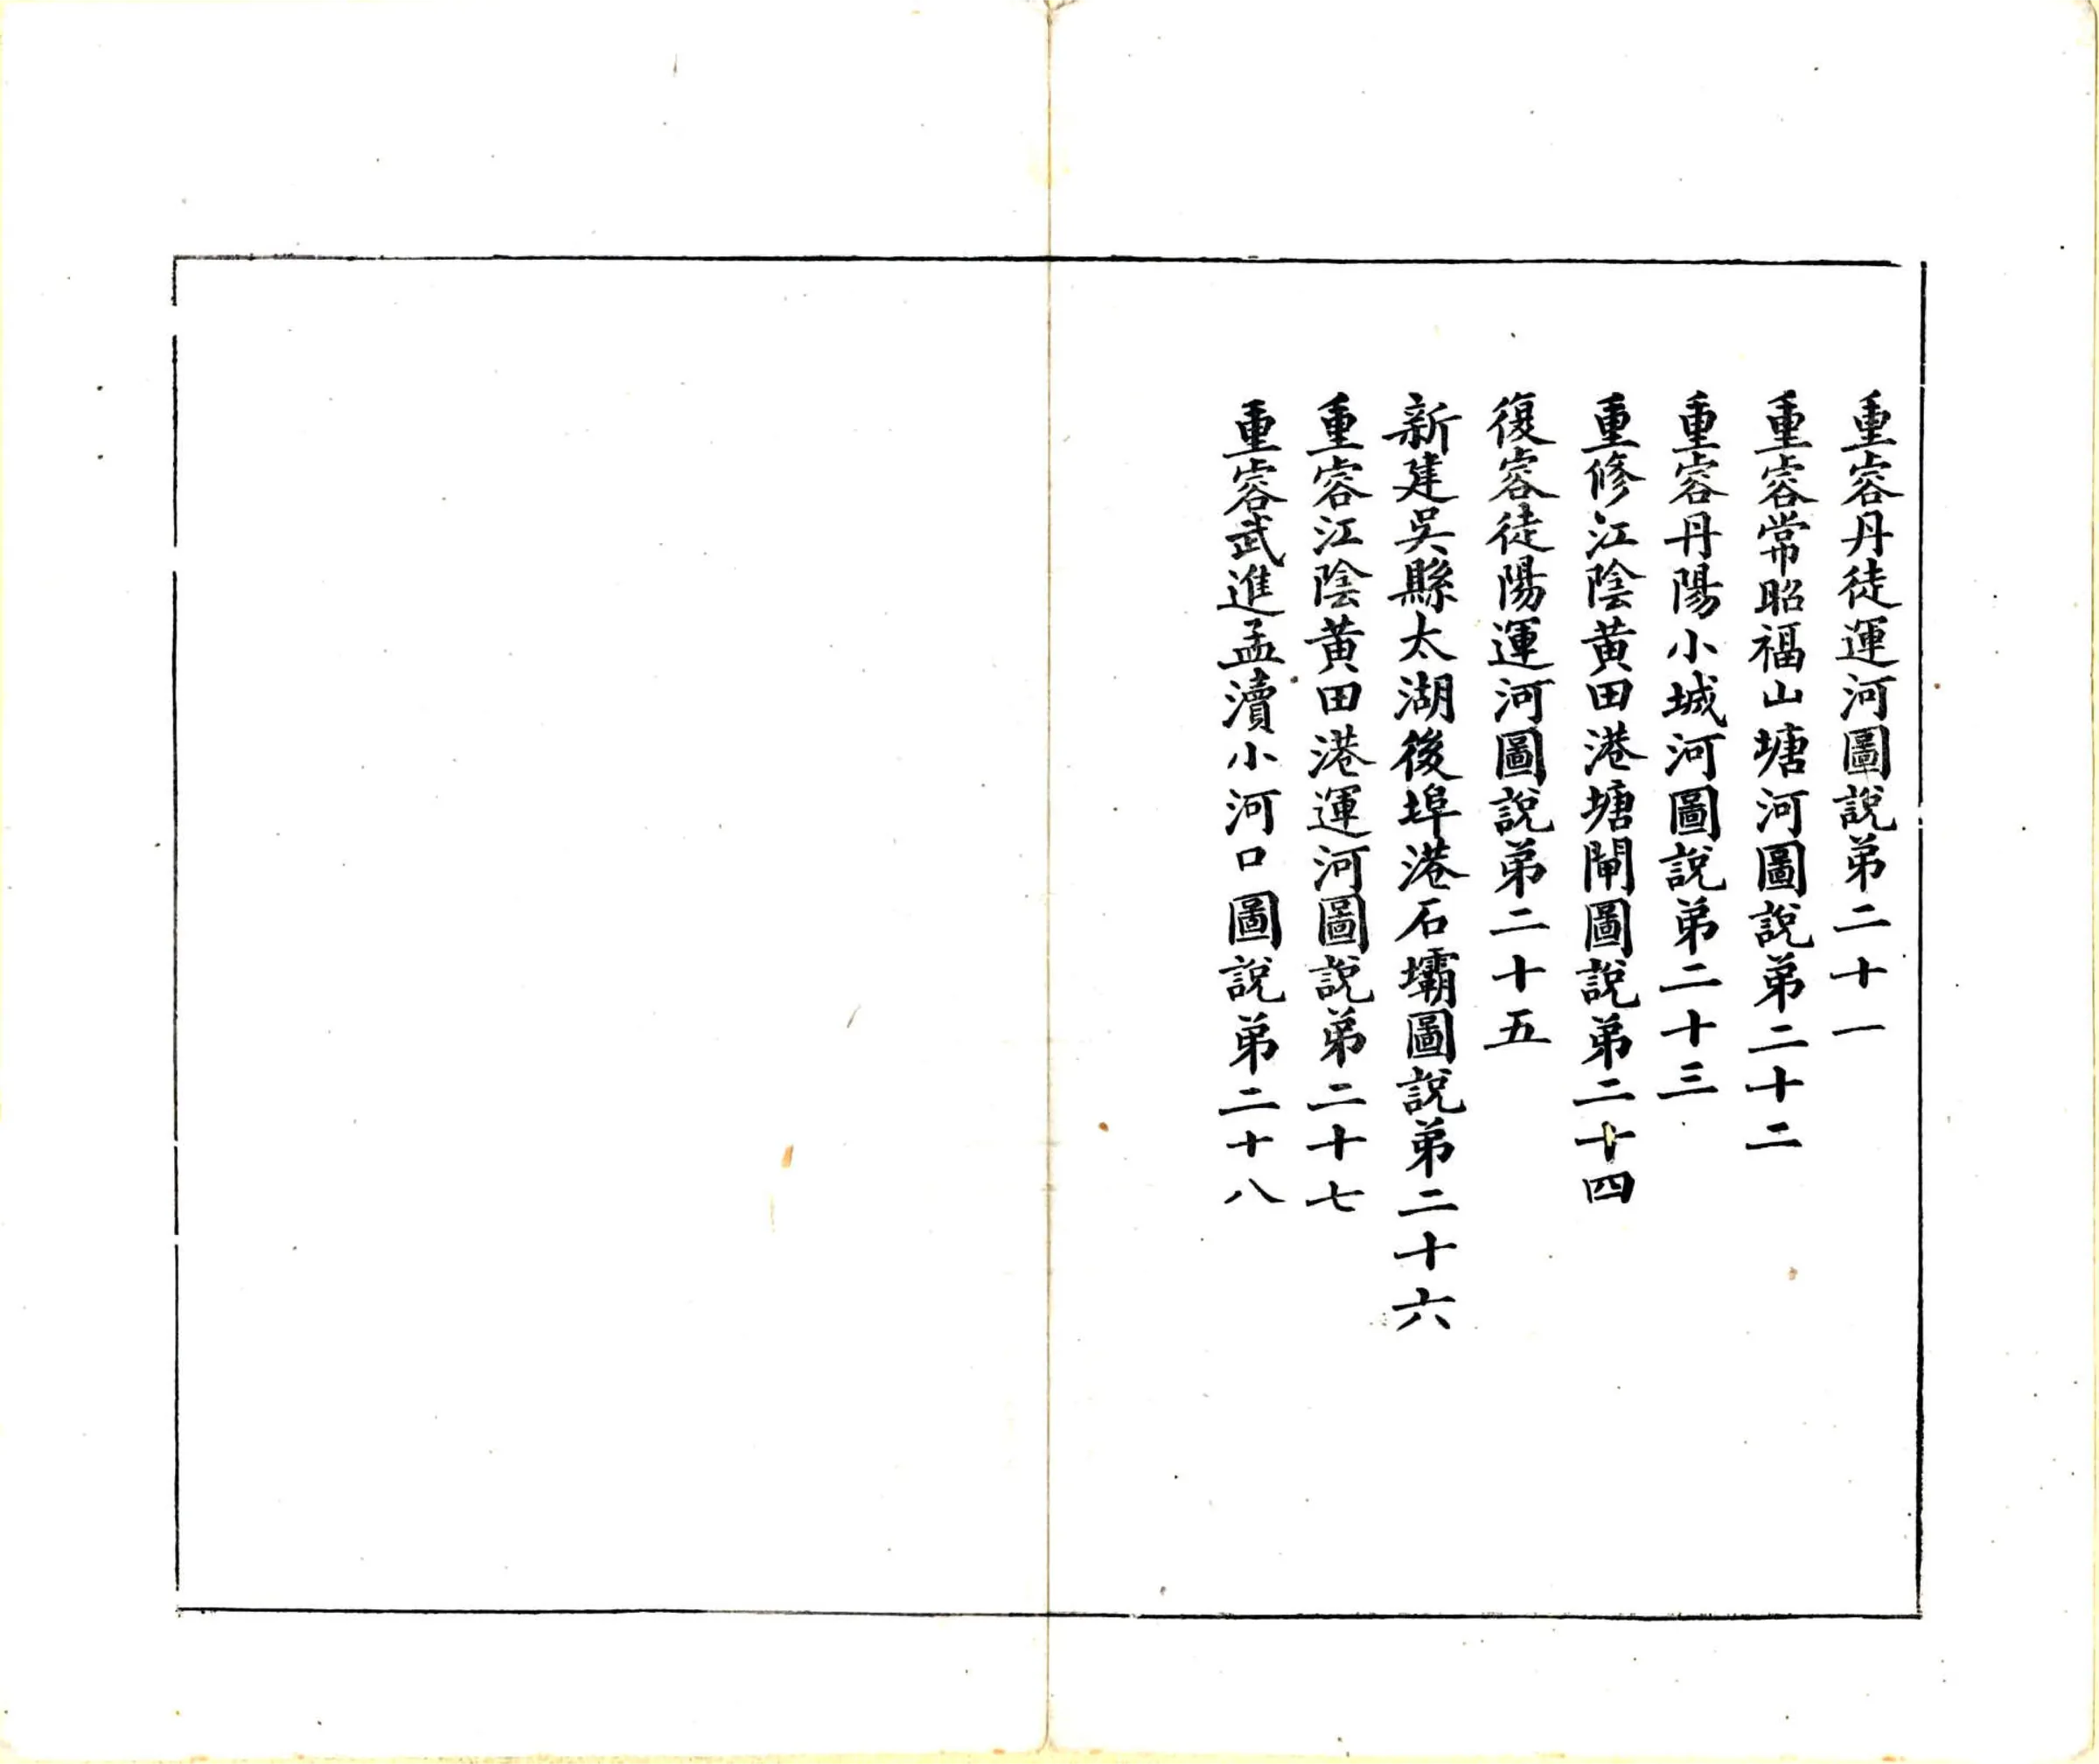 重䜭丹徒運河圖說弟二十一
重䜭常昭福山塘河圖說弟二十二
重䜭丹陽小城河圖說弟二十三
重修江陰黄田港塘閘圖說弟二十四
復䜭徒陽運河圖說弟二十五
新建吳縣太湖後埠港石壩圖說弟二十六
重䜭江陰黄田港運河圖說弟二十七
重䜭武進孟瀆小河口圖說弟二十八